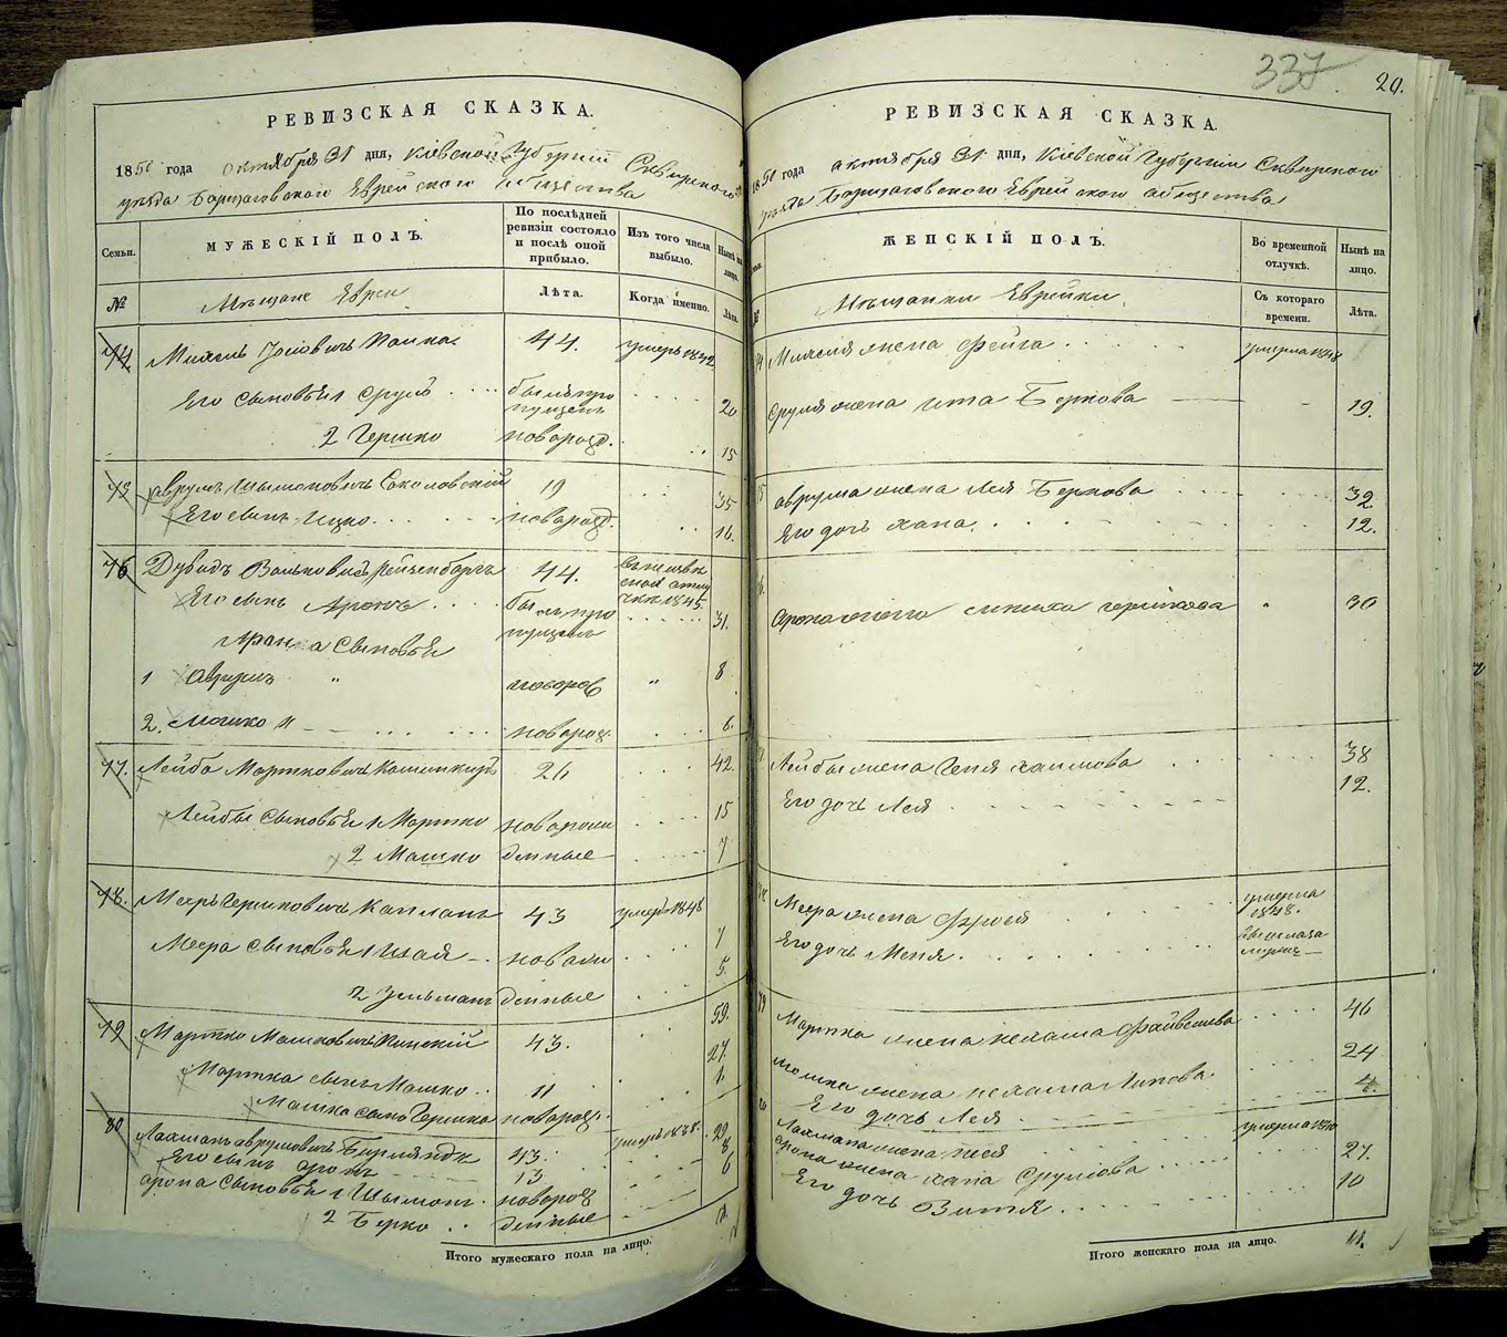 337
20.
РЕВИЗСКАЯ СКАЗКА.
1850 года октября 31 дня, Кіевской Губерніи Сквирского
уѣзда Борщаговского Еврейского общества
Семьи.
МУЖЕСКІЙ ПОЛЪ.
По послѣдней ревизіи состояло и послѣ оной прибыло.
Изъ того числа выбыло.
Нынѣ на лицо.
№
Мѣщане Евреи
Лѣта.
Когда именно.
Лѣта.
74. 44. умеръ 1842
Его сыновья 1 Сруль былъ пропущенъ 20
2 Гершко новорожд. 15
75 Аврумъ Шымоновичъ Соколовскій 19 35
Его сынъ Ицко новорожд. 16.
76 Дувидъ Вольковичъ 44. 1845.
Его сынъ Аронъ былъ пропущенъ 31.
Арона сыновья
1 Аврумъ " новорож " 8
2. Мошко новорож. 6.
77. Лейба Мортковичъ 26 42.
Лейбы сыновья 1 Мортко новорож 15
2 Мошко денные 7
78. Мееръ Гершковичъ Капланъ 43 умеръ 1848
Меера сыновья 1 Шая новорож 7
2 Зельманъ денные 5.
79 Мортко Мошковичъ 43. 59.
Мортка сынъ Мошко 11 27.
Мошка сынъ Гершко новорож. 1.
80 Лахманъ Аврумовичъ 43. умеръ 1838.
Его сынъ Аронъ 13 29
Арона сыновья 1 Шымонъ новорож 8
2 Берко денные 6
Итого мужескаго пола на лицо.
РЕВИЗСКАЯ СКАЗКА.
1850 года октября 31 дня, Кіевской Губерніи Сквирского
уѣзда Борщаговского Еврейского общества
ЖЕНСКІЙ ПОЛЪ.
Во временной отлучкѣ.
Нынѣ на лицо.
№
Мѣщанки Еврейки.
Съ котораго времени.
Лѣта.
74 жена Фейга умерла 1848
Сруля жена Ита Беркова 19.
75 Аврума жена Лея Беркова 32
Его дочь Хана 12.
76. Арона жена Гершкова 30
77. Лейбы жена Геня Хаимова 38
Его дочь Лея 12.
78 Меера жена Фроья умерла 1848.
Его дочь Меня. вышла за мужъ
79 Мортка жена Нехама Файвешева 46
Мошка жена Нехама Липова 24
Его дочь Лея 4.
80 Лахмана жена Песя умерла
Арона жена Хана Срулова 27.
Его дочь Витя 10
Итого женскаго пола на лицо. 11.